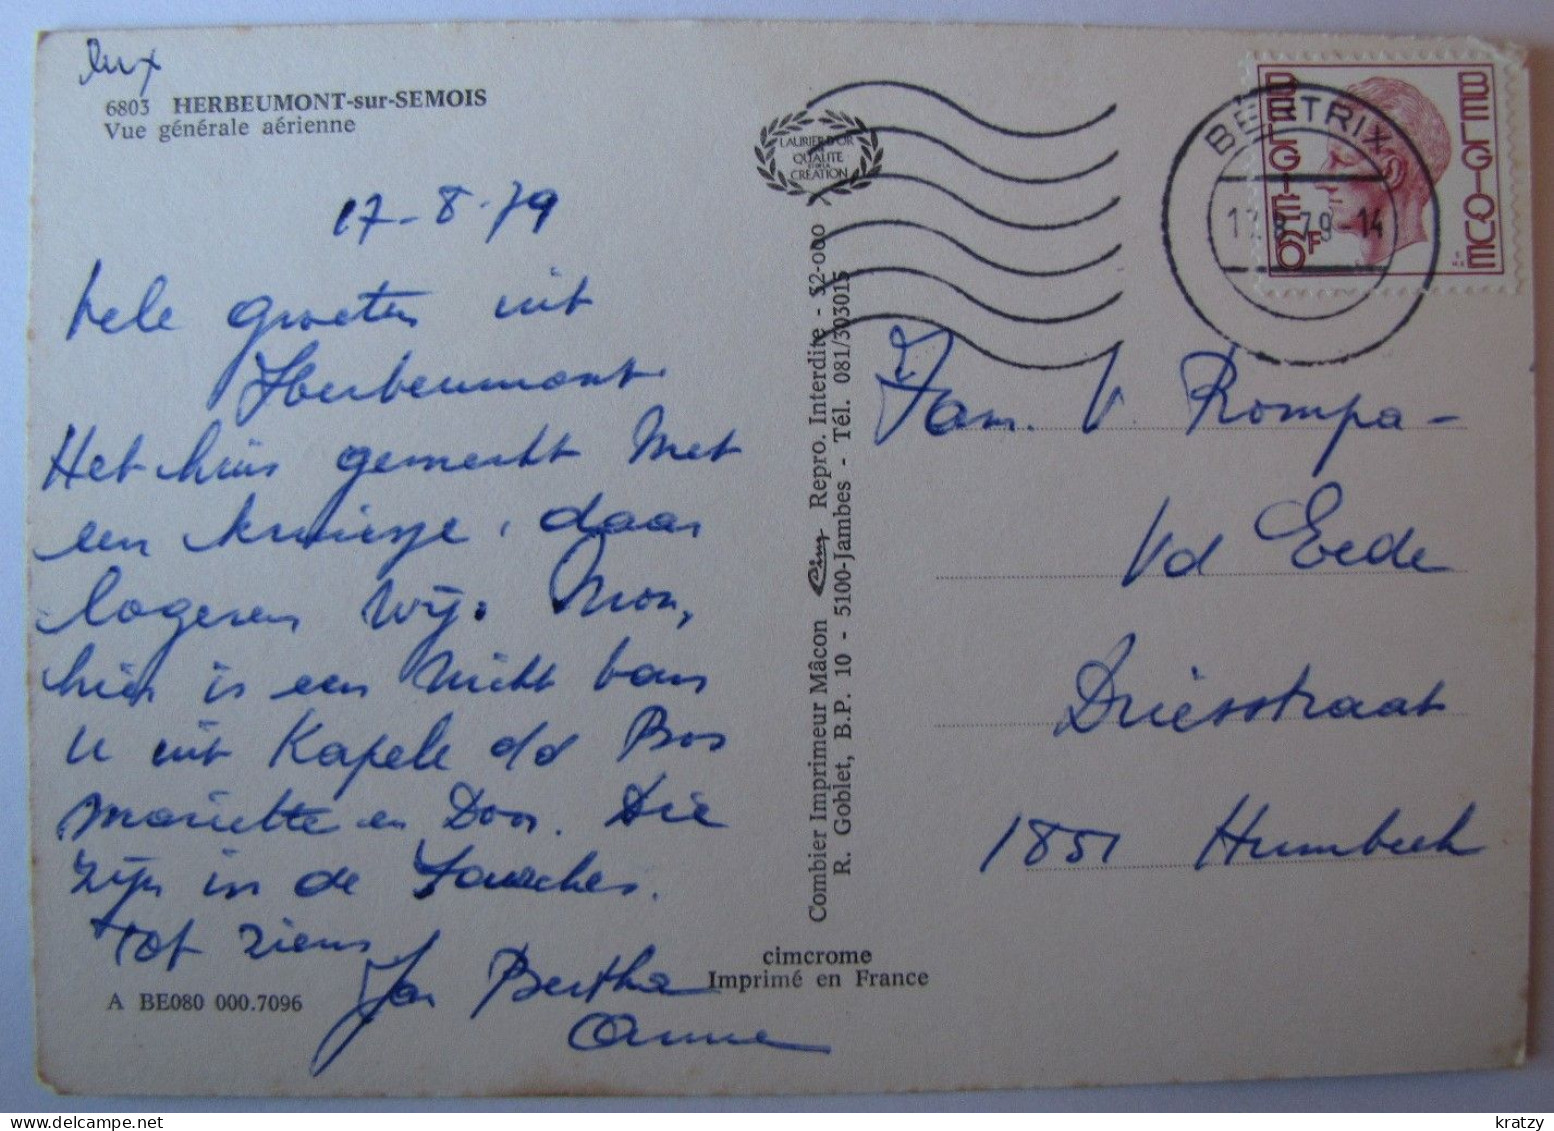 lux
6803 HERBEUMONT-sur-SEMOIS
Vue générale aérienne
17-8-79
vele groeten uit
Herbeumont
Het huis gemerkt met
een kruisje, daar
logeren wij. Mon,
hier is een nicht van
U uit Kapele od Bos
Mariette en Door. Die
zijn in de
Tot ziens
Jan Bertha
Anne
A BE080 000.7096
LAURIER D'OR
QUALITÉ
CRÉATION
Combier Imprimeur Mâcon Cim Repro. Interdite - S2-000
R. Goblet, B.P. 10 - 5100-Jambes - Tél. 081/303015
cimcrome
Imprimé en France
BELGIQUE
BELGIË
6F
BERTRIX
17 8 79-14
Fam. V. Rompa-
Vd Eede
Driesstraat
1851 Humbeek
kratzy